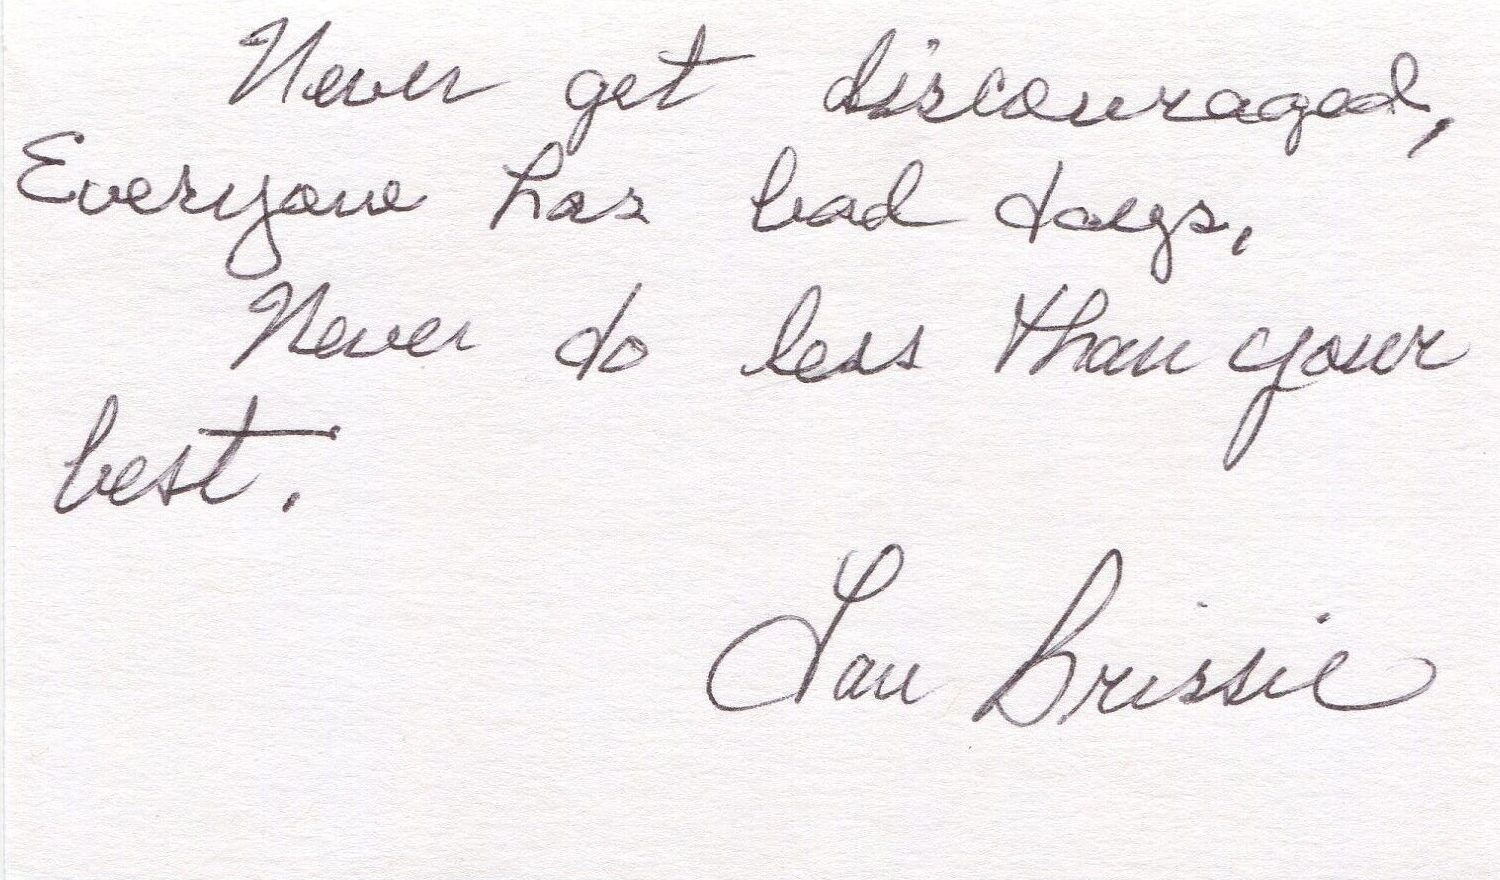 Never get discouraged,
Everyone has bad days,
Never do less than your
best.
Lou Brissie